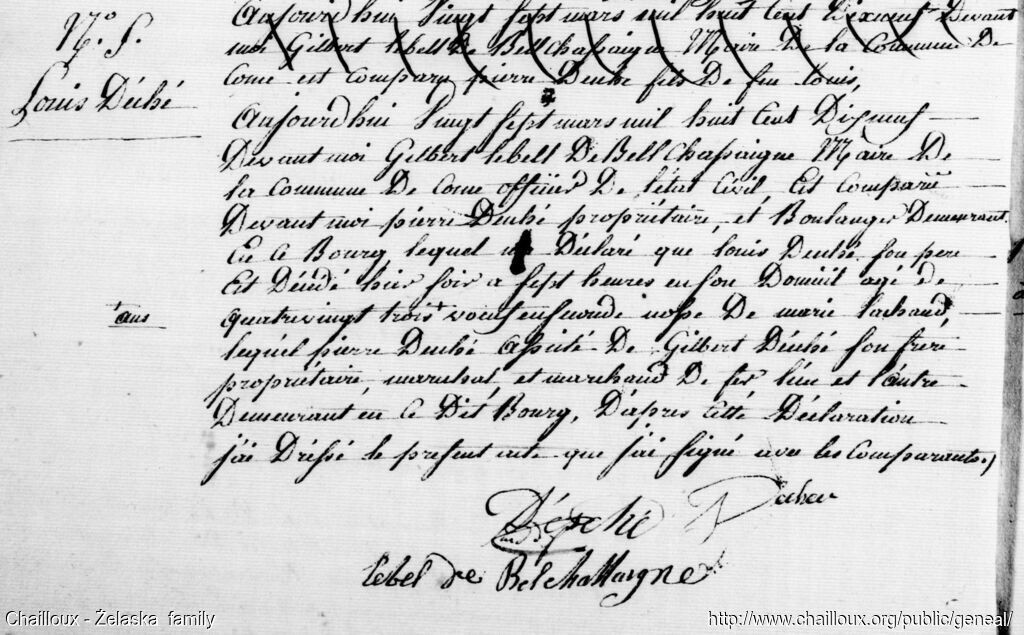 N.° 5.
Louis Déché
ans
Aujourdhui Vingt sept mars mil huit Cent Dixneuf Devant
moi Gilbert lebell De Bell Chassaigne Maire De la Commune De
Come est Comparu pierre Deuché fils De feu louis,
Aujourdhui Vingt sept mars mil huit Cent Dixneuf
Devant moi Gilbert lebell De Bell Chassaigne Maire De
la Commune De Come officier De létat Civil Est Comparu
Devant moi pierre Deuché propriétaire, et Boulanger Demeurant
En Ce Bourg lequel Déclaré que louis Deuché son pere
Est Décédé hier soir a sept heures en son Domicil agé de
quatrevingt trois veuf en seconde nose De marie lachaud,
lequel pierre Deuché assisté De Gilbert Déuché son frere
propriétaire, marechal, et marchand De fer l'un et l'autre
Demeurant en Ce Dit Bourg, D'apres Cette Déclaration
j'ai Dréssé le present acte que j'ai signé avec les Comparants.)
lebel de Belchassaigne
Chailloux - Želaska family
http://www.chailloux.org/public/geneal/